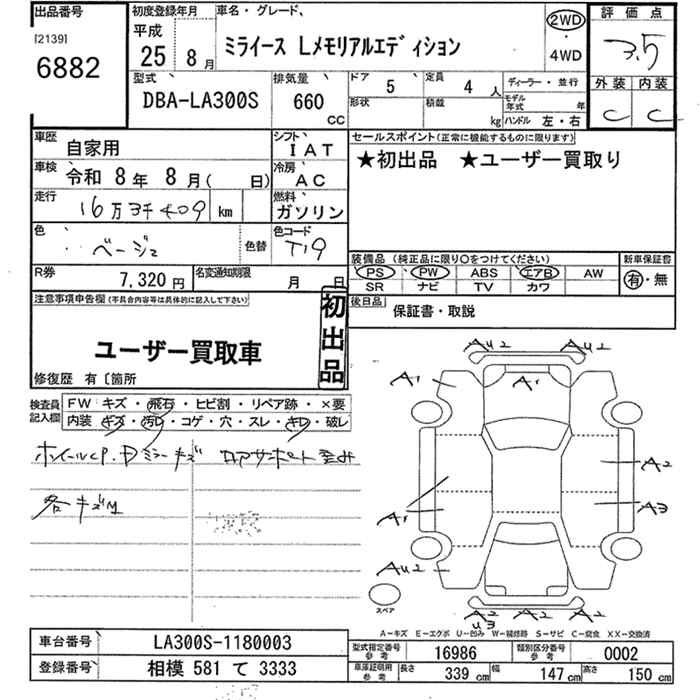 出品番号
[2139]
6882
初度登録年月
平成
25 8月
車名・グレード、
ミライース Lメモリアルエディション
2WD
・
4WD
評価点
3.5
外装 内装
C C
型式
DBA-LA300S
排気量
660
CC
ドア 5
定員 4 人
形状
積載 kg
ディーラー・並行
モデル年式 年
ハンドル 左・右
車歴 自家用
シフト IAT
車検 令和 8年 8月( 日)
冷房 AC
走行 16万3千409 km
燃料 ガソリン
色 ベージュ
色替
色コード T19
R券 7,320円
名変通知期限 月 日
セールスポイント(正常に機能するものに限ります)
★初出品 ★ユーザー買取り
装備品(純正品に限り○をつけてください)
新車保証書
PS PW ABS エアB AW
SR ナビ TV カワ
有・無
後日品 保証書・取説
注意事項申告欄(不具合内容等は具体的に記入して下さい)
初出品
ユーザー買取車
修復歴 有〔箇所
検査員記入欄
FW キズ・飛石・ヒビ割・リペア跡・×要
内装 キズ・汚レ・コゲ・穴・スレ・キレ・破レ
ホイールCP.Dミラーキズ ロアサポート歪み
各キズ
AU2 AU2
A1 A1
A2
A1 A3
AU2
スペア
A2 A2 A2
U3
A-キズ E-エクボ U-凹み W-補修跡 S-サビ C-腐食 XX-交換済
車台番号 LA300S-1180003
登録番号 相模 581 て 3333
型式指定番号 参考 16986
類別区分番号 参考 0002
車庫証明用 参考 長さ 339cm 幅 147cm 高さ 150cm